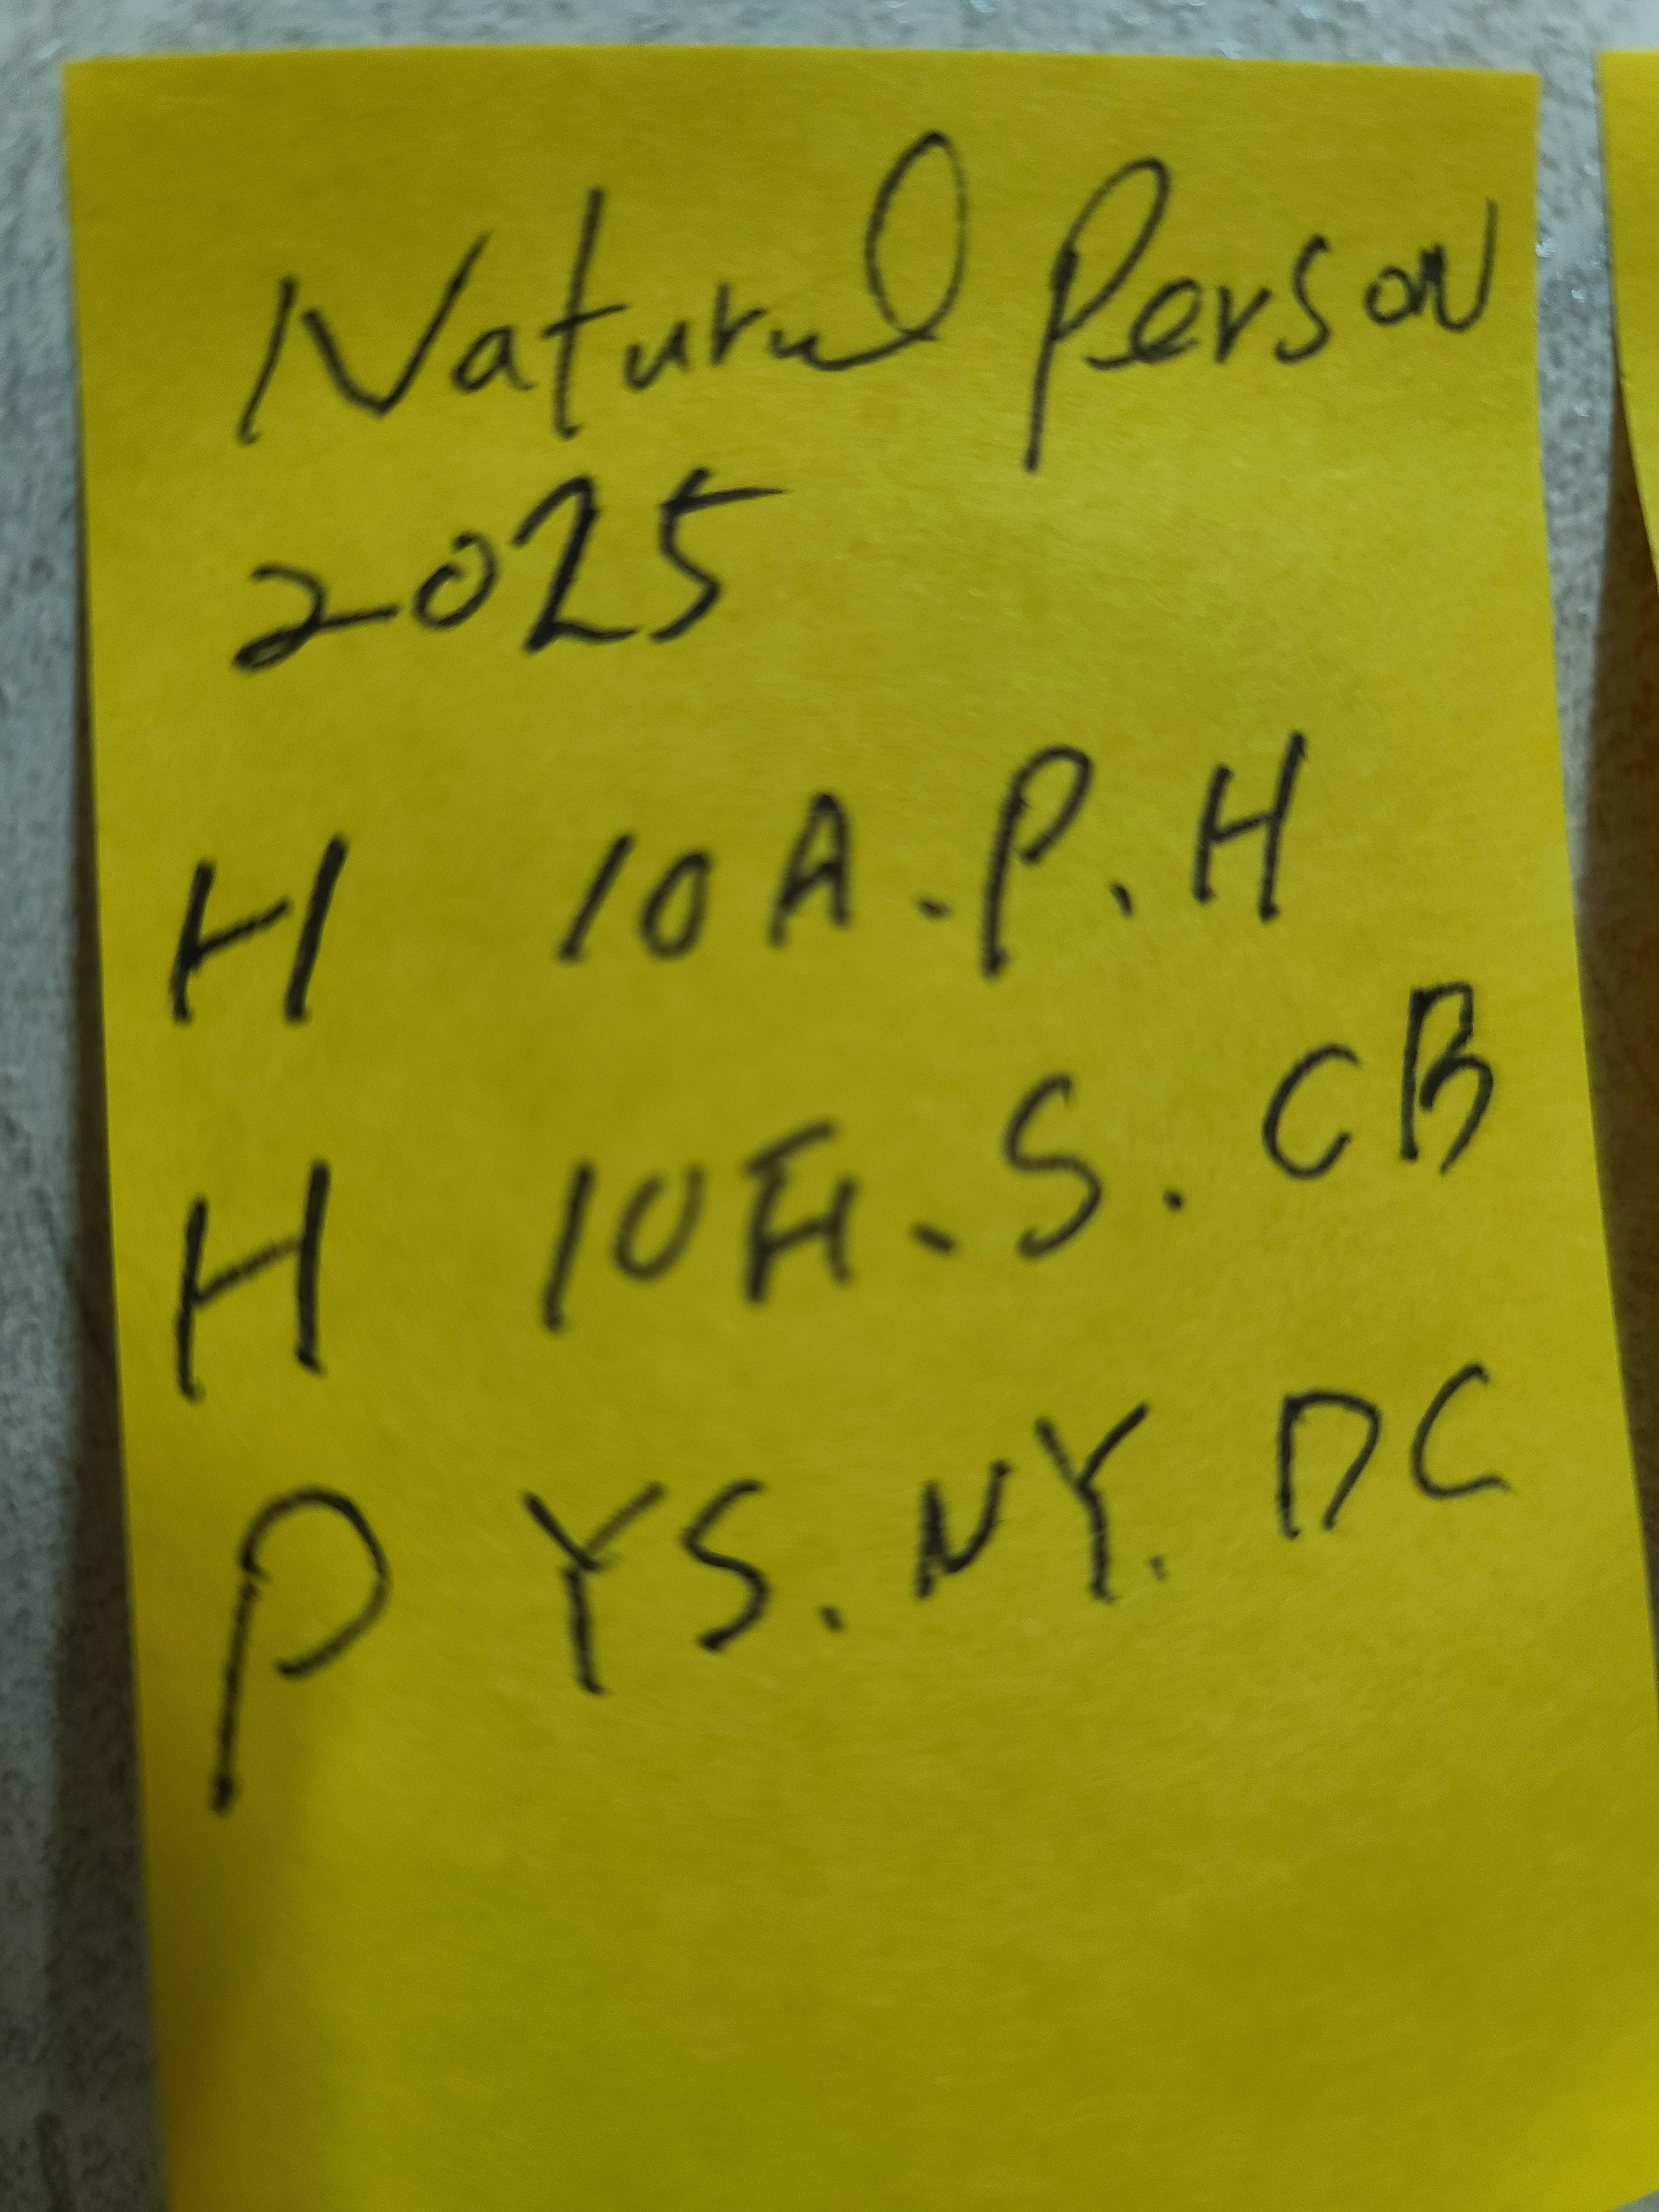 Natural Person
2025
H 10 A. P. H
H 10 . S. CB
P YS. NY. DC